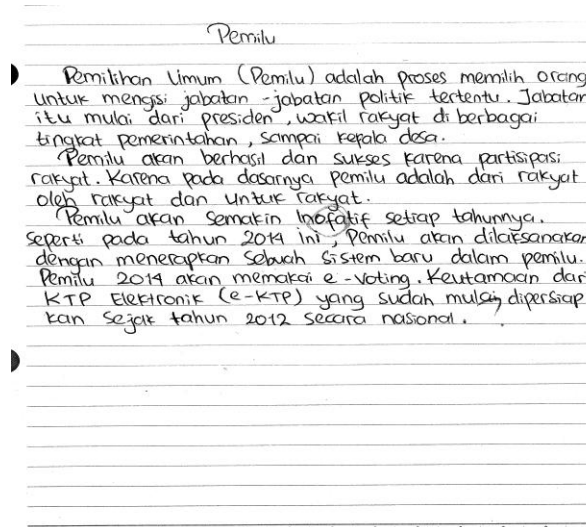 Pemilu
Pemilihan Umum (Pemilu) adalah proses memilih orang
untuk mengisi jabatan-jabatan politik tertentu. Jabatan
itu mulai dari presiden, wakil rakyat di berbagai
tingkat pemerintahan, sampai kepala desa.
Pemilu akan berhasil dan sukses karena partisipasi
rakyat. Karena pada dasarnya pemilu adalah dari rakyat
oleh rakyat dan untuk rakyat.
Pemilu akan semakin Inofatif setiap tahunnya.
seperti pada tahun 2014 ini, Pemilu akan dilaksanakan
dengan menerapkan sebuah sistem baru dalam pemilu.
Pemilu 2014 akan memakai e-voting. Keutamaan dari
KTP Elektronik (e-KTP) yang sudah mulai dipersiap
kan sejak tahun 2012 secara nasional.